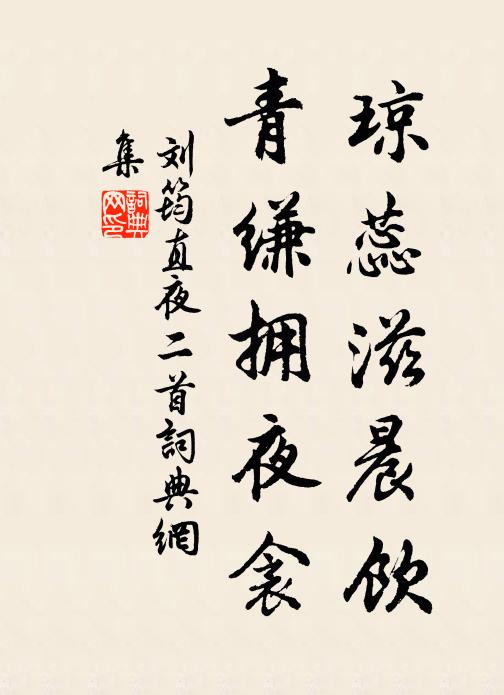 琼蕊滋晨饮
青缣拥夜衾
刘筠直夜二首詞典網
集
詞典网印